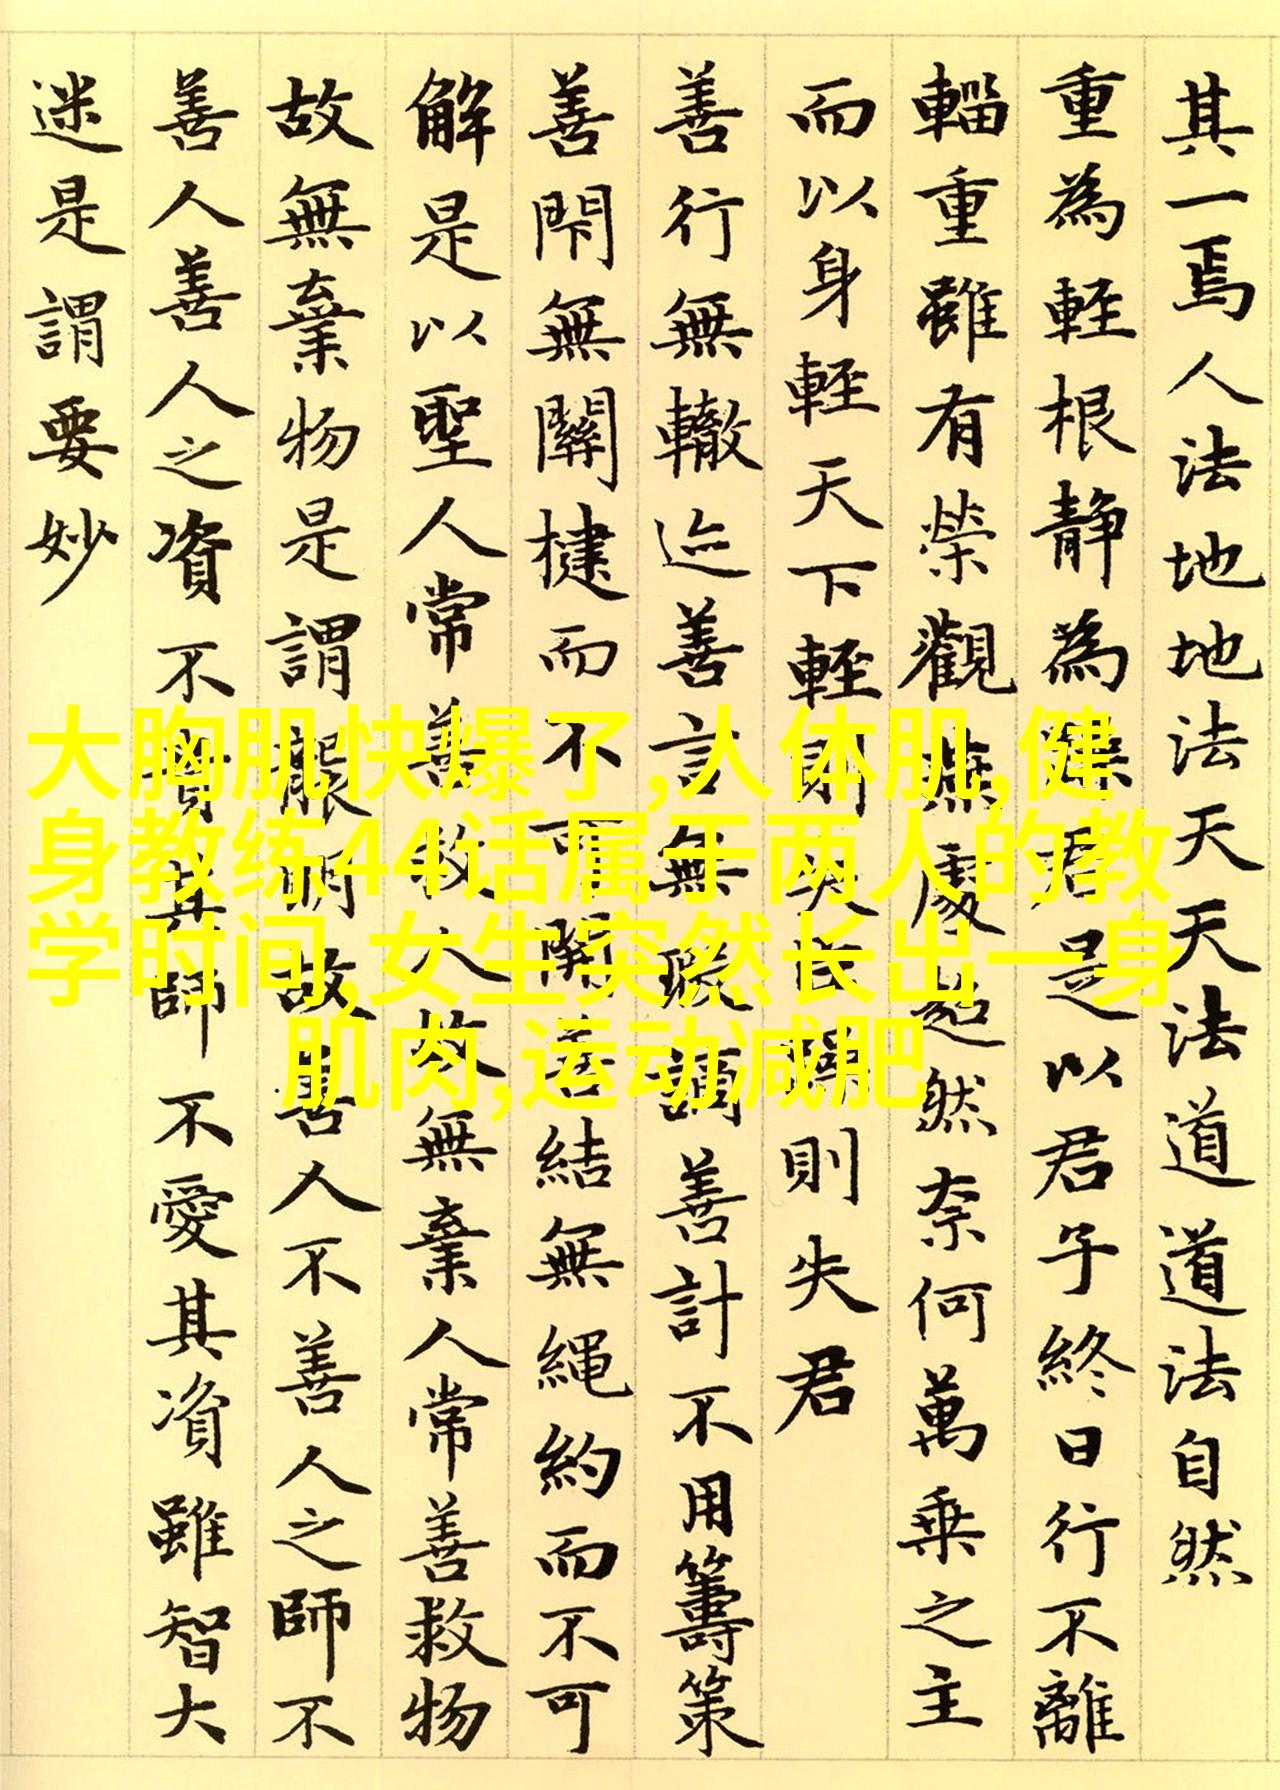 其一焉人法地地法天天法道道法自然
重為輕根靜為躁君是以君子終日行不離
輜重雖有榮觀燕處超然柰何萬乘之主
而以身輕天下輕則失臣躁則失君
善行無轍迹善言無瑕讁善計不用籌策
善閇無關楗而不可開善結無繩約而不可
解是以聖人常善救人故無棄人常善救物
故無棄物是謂襲明故善人不善人之師不
善人善人之資不貴其師不愛其資雖智大
迷是謂要妙
大胸肌快爆了,人体肌,健
身教练44话属于两人的教
学时间,女生突然长出一身
肌肉,运动减肥